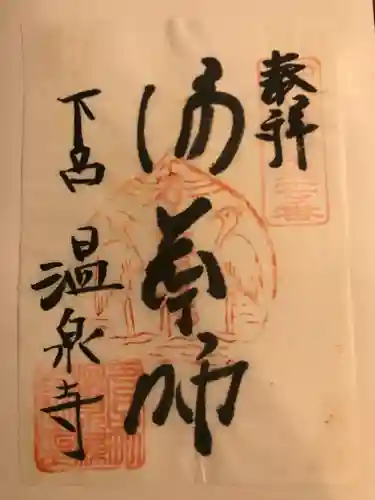 奉拝
湯薬師
下呂
温泉寺